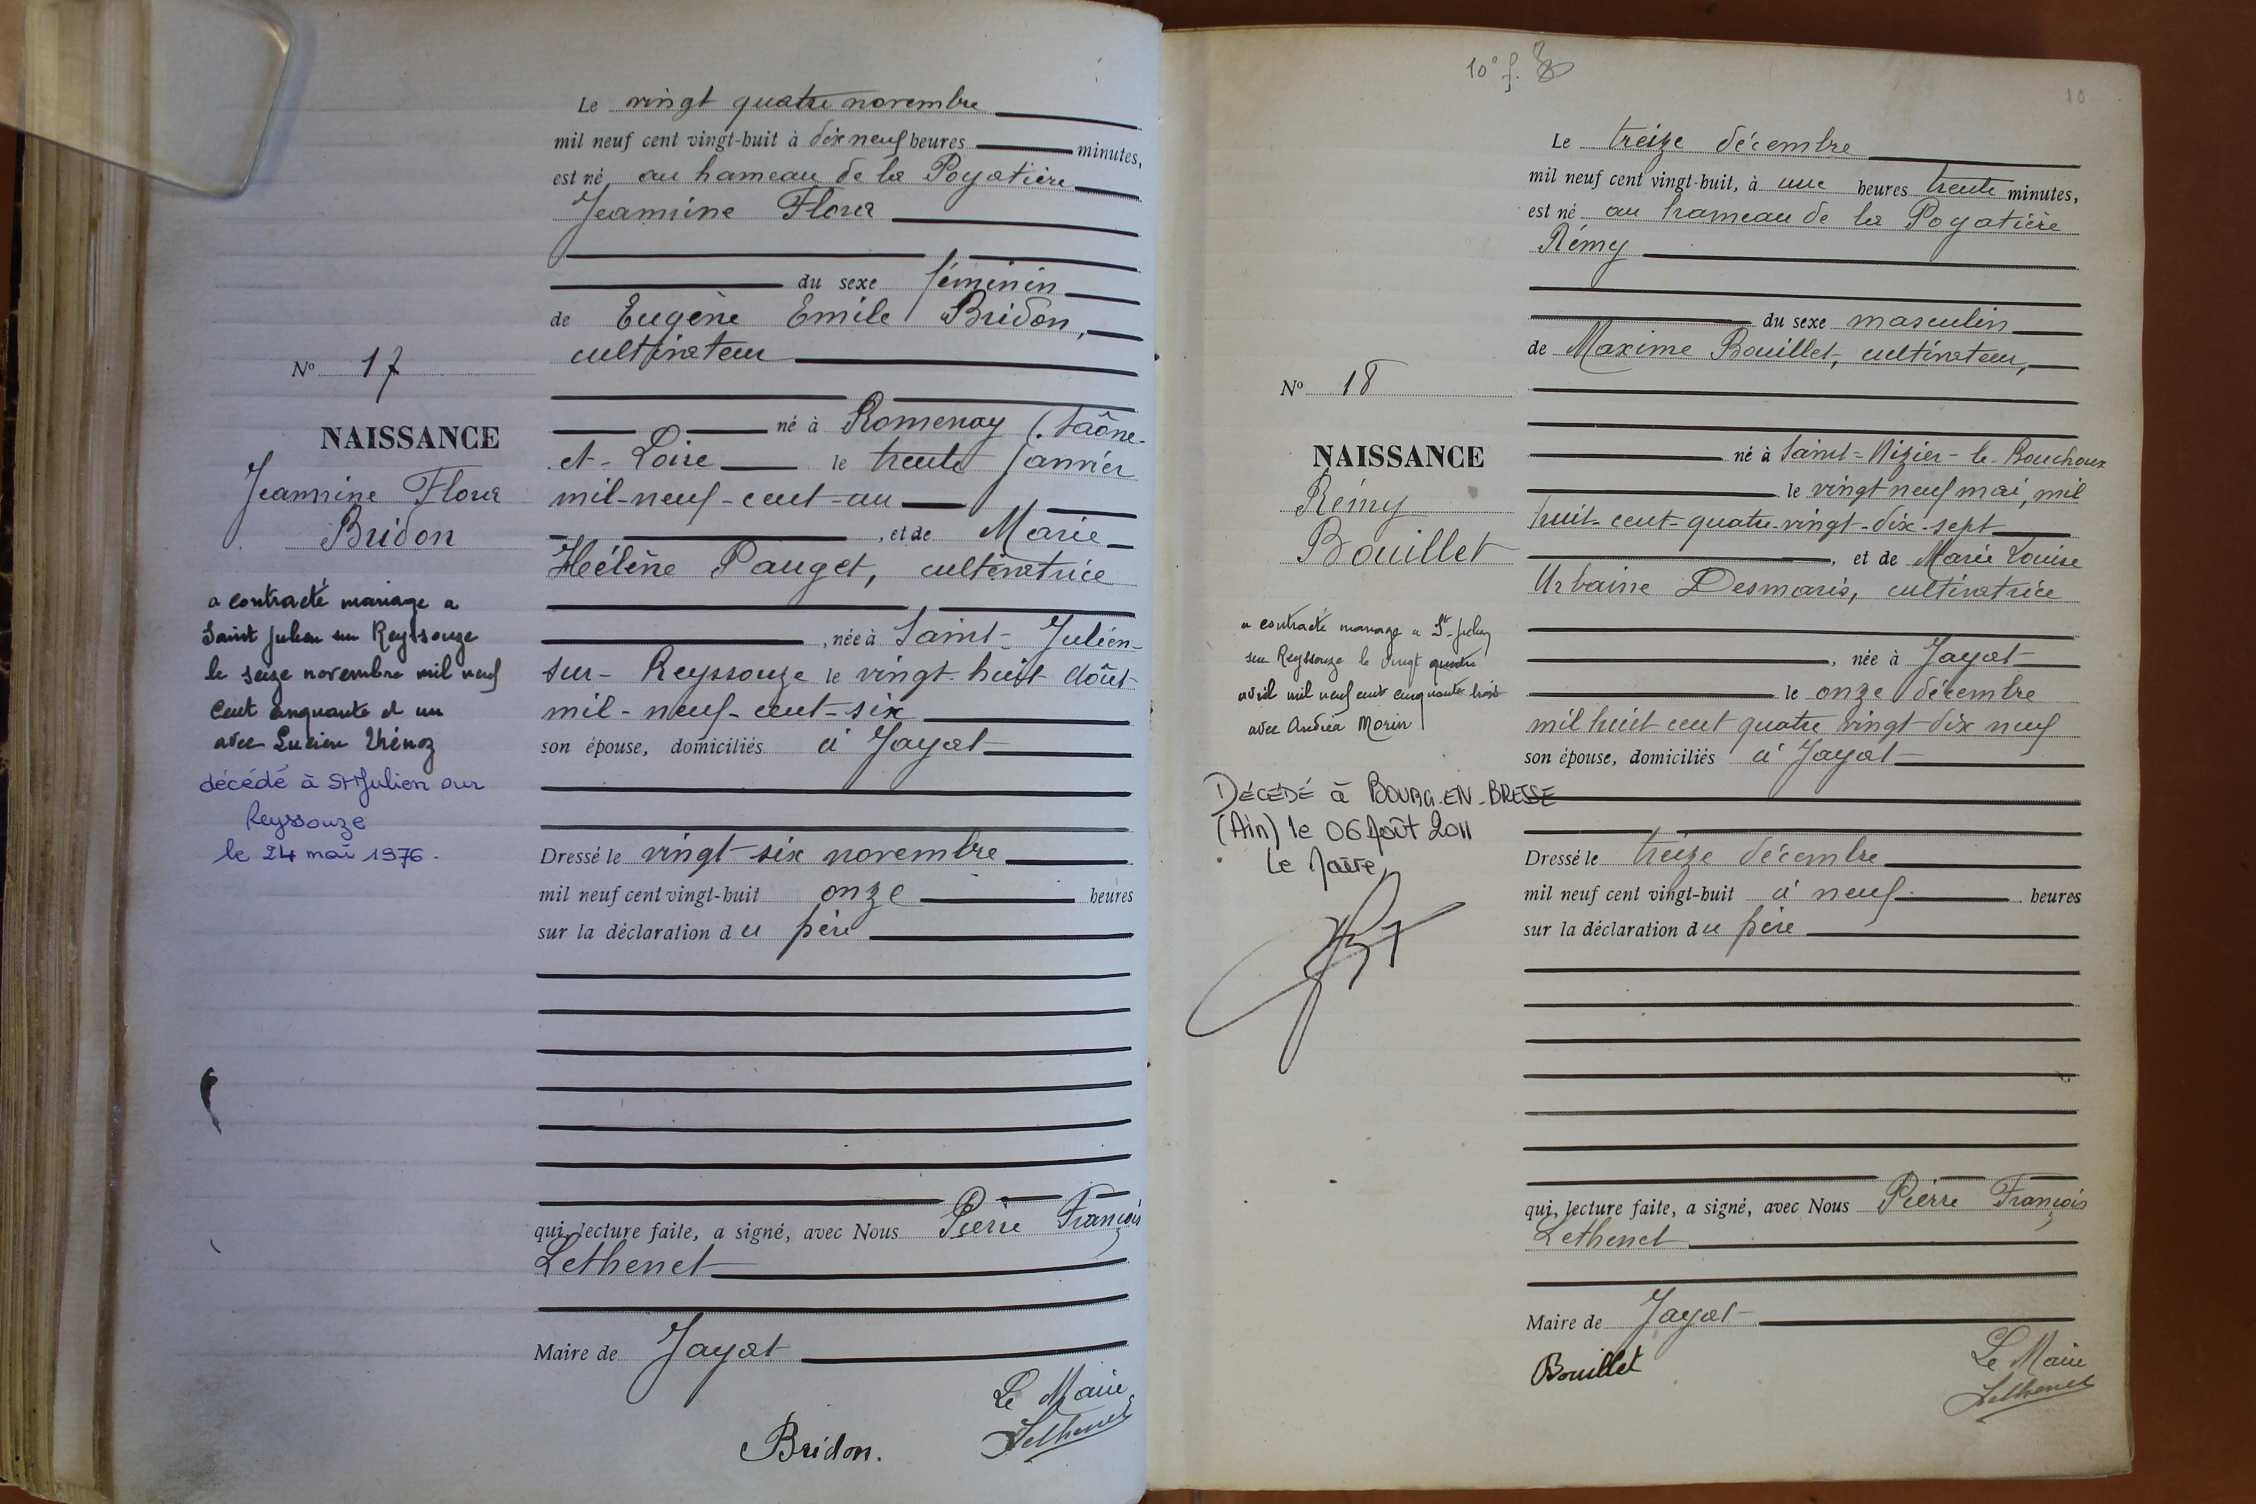 Le vingt quatre novembre
mil neuf cent vingt-huit à dix neuf heures minutes,
est né au hameau de la Poyatière
Jeannine Flora
du sexe féminin
de Eugène Emile Bridon,
cultivateur
né à Romenay (Saône-
et-Loire le trente janvier
mil-neuf-cent-un
, et de Marie
Hélène Pauget, cultivatrice
, née à Saint-Julien-
sur-Reyssouze le vingt-huit août
mil-neuf-cent-six
son épouse, domiciliés à Jayat
Dressé le vingt-six novembre
mil neuf cent vingt-huit onze heures
sur la déclaration du père
qui, lecture faite, a signé, avec Nous Pierre François
Lethenet
Maire de Jayat
Le Maire
Lethenet
Bridon.
No 17
NAISSANCE
Jeannine Flora
Bridon
a contracté mariage a
Saint Julien sur Reyssouze
le seize novembre mil neuf
cent cinquante et un
avec Lucien Thénoz
décédé à St Julien sur
Reyssouze
le 24 mai 1976.
10e f.
10
Le treize décembre
mil neuf cent vingt-huit, à une heures trente minutes,
est né au hameau de la Poyatière
Rémy
du sexe masculin
de Maxime Bouillet, cultivateur,
né à Saint-Nizier-le-Bouchoux
le vingt neuf mai, mil
huit-cent-quatre-vingt-dix-sept
, et de Marie Louise
Urbaine Desmaris, cultivatrice
, née à Jayat
le onze décembre
mil huit cent quatre vingt dix neuf
son épouse, domiciliés à Jayat
Dressé le treize décembre
mil neuf cent vingt-huit à neuf heures
sur la déclaration du père
qui, lecture faite, a signé, avec Nous Pierre François
Lethenet
Maire de Jayat
Le Maire
Lethenet
Bouillet
No 18
NAISSANCE
Rémy
Bouillet
a contracté mariage a St-Julien
sur Reyssouze le vingt quatre
avril mil neuf cent cinquante trois
avec Andréa Morin
DÉCÉDÉ à BOURG-EN-BRESSE
(Ain) le 06 Août 2011
Le Maire,